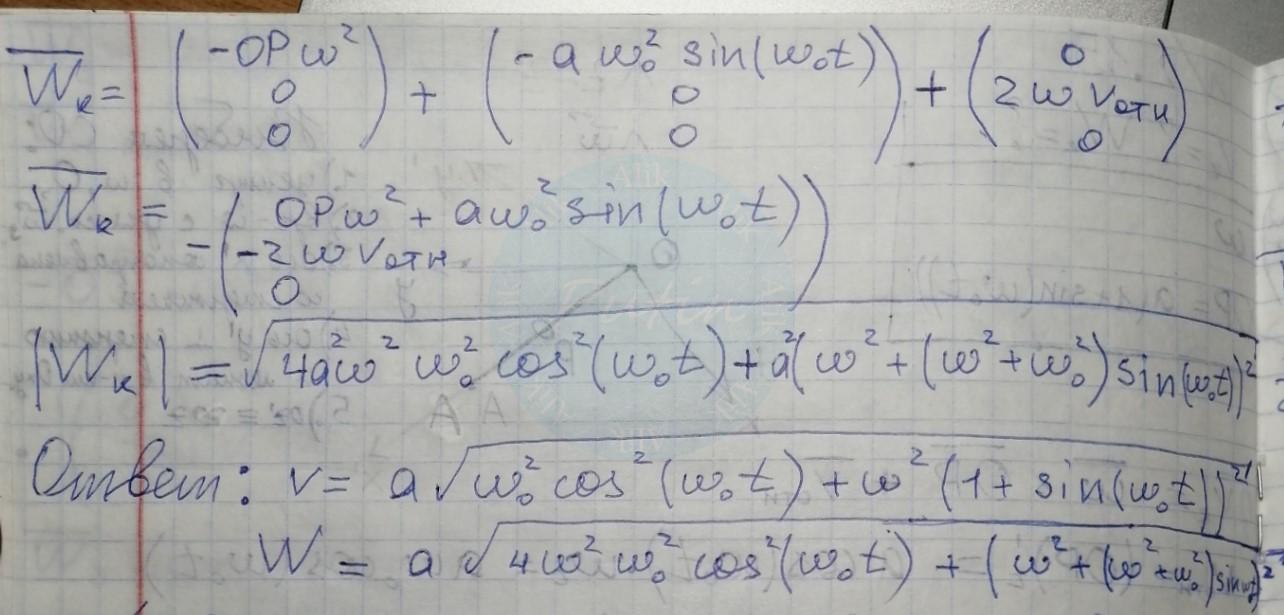 W̅ₖ = (-OPω² 0 0) + (-aω₀² sin(ω₀t) 0 0) + (0 2ωvотн 0)
W̅ₖ = -(OPω² + aω₀² sin(ω₀t) -2ωvотн 0)
|Wₖ| = √4a²ω²ω₀² cos²(ω₀t) + a²(ω² + (ω² + ω₀²) sin(ω₀t))²
Ответ: v = a√ω₀² cos²(ω₀t) + ω²(1 + sin(ω₀t))²
W = a√4ω²ω₀² cos²(ω₀t) + (ω² + (ω² + ω₀²) sin ω₀t)²